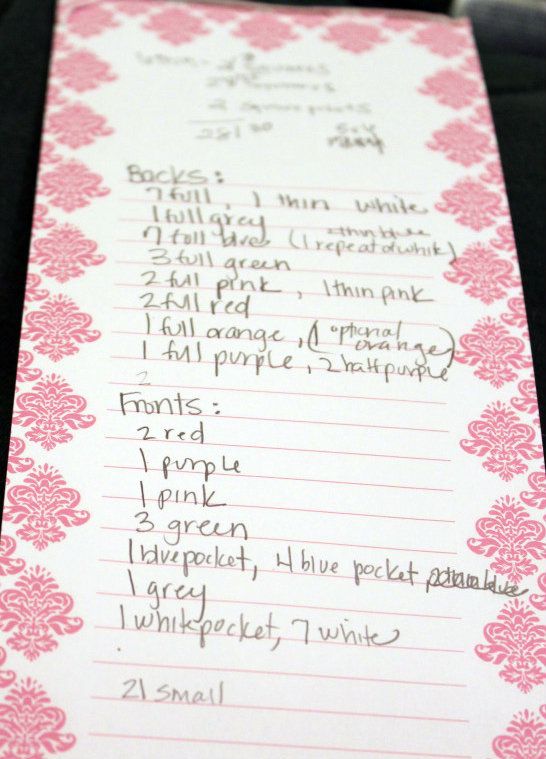 Backs:
7 full, 1 thin white
1 full grey
7 full blues (1 repeat of white)
3 full green
2 full pink, 1 thin pink
2 full red
1 full orange, (1 optional orange)
1 full purple, 2 half purple
2
Fronts:
2 red
1 purple
1 pink
3 green
1 blue pocket, 4 blue pocket
1 grey
1 white pocket, 7 white
21 small